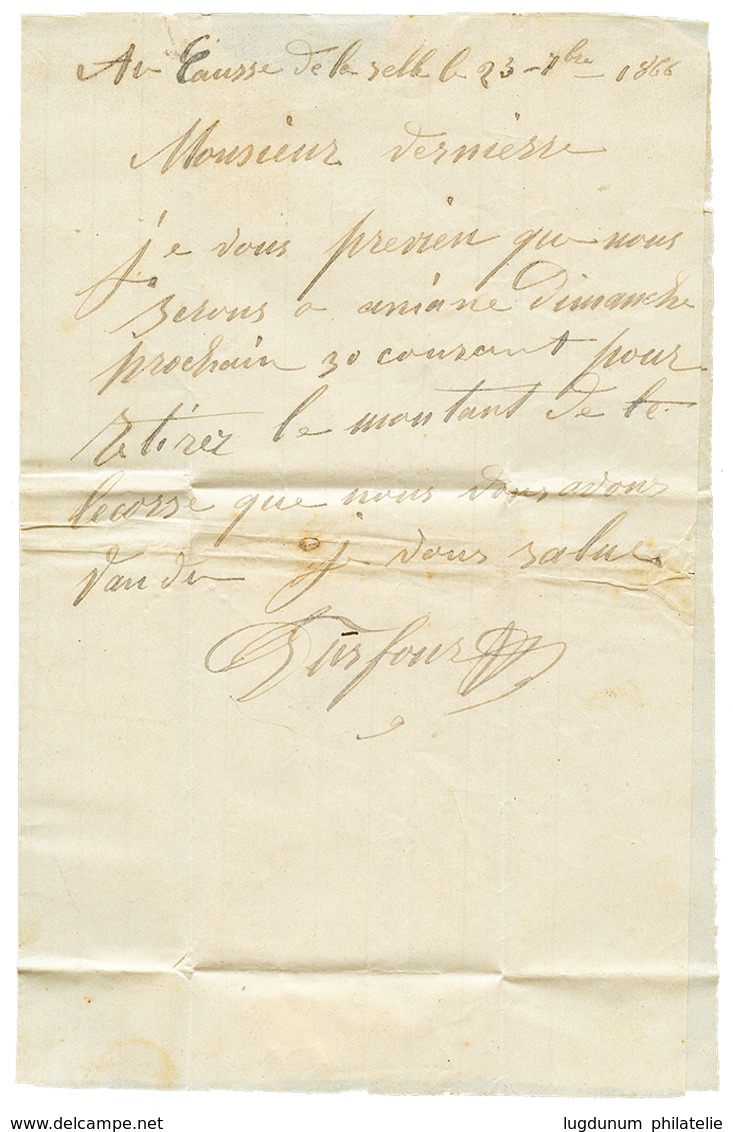 Au Causse de la selle le 23 - 7bre 1866
Monsieur dernierre
je vous previen que nous
serons a aniane Dimanche
prochain 30 courant pour
retirez le montant de le
lecorse que nous vous avons
vandu je vous salue
delcampe.net
lugdunum philatelie